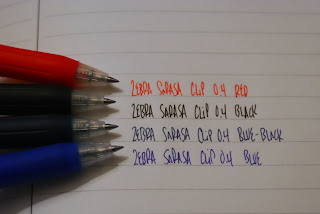 ZEBRA SARASA CLIP 0.4 RED
ZEBRA SARASA CLIP 0.4 BLACK
ZEBRA SARASA CLIP 0.4 BLUE-BLACK
ZEBRA SARASA CLIP 0.4 BLUE